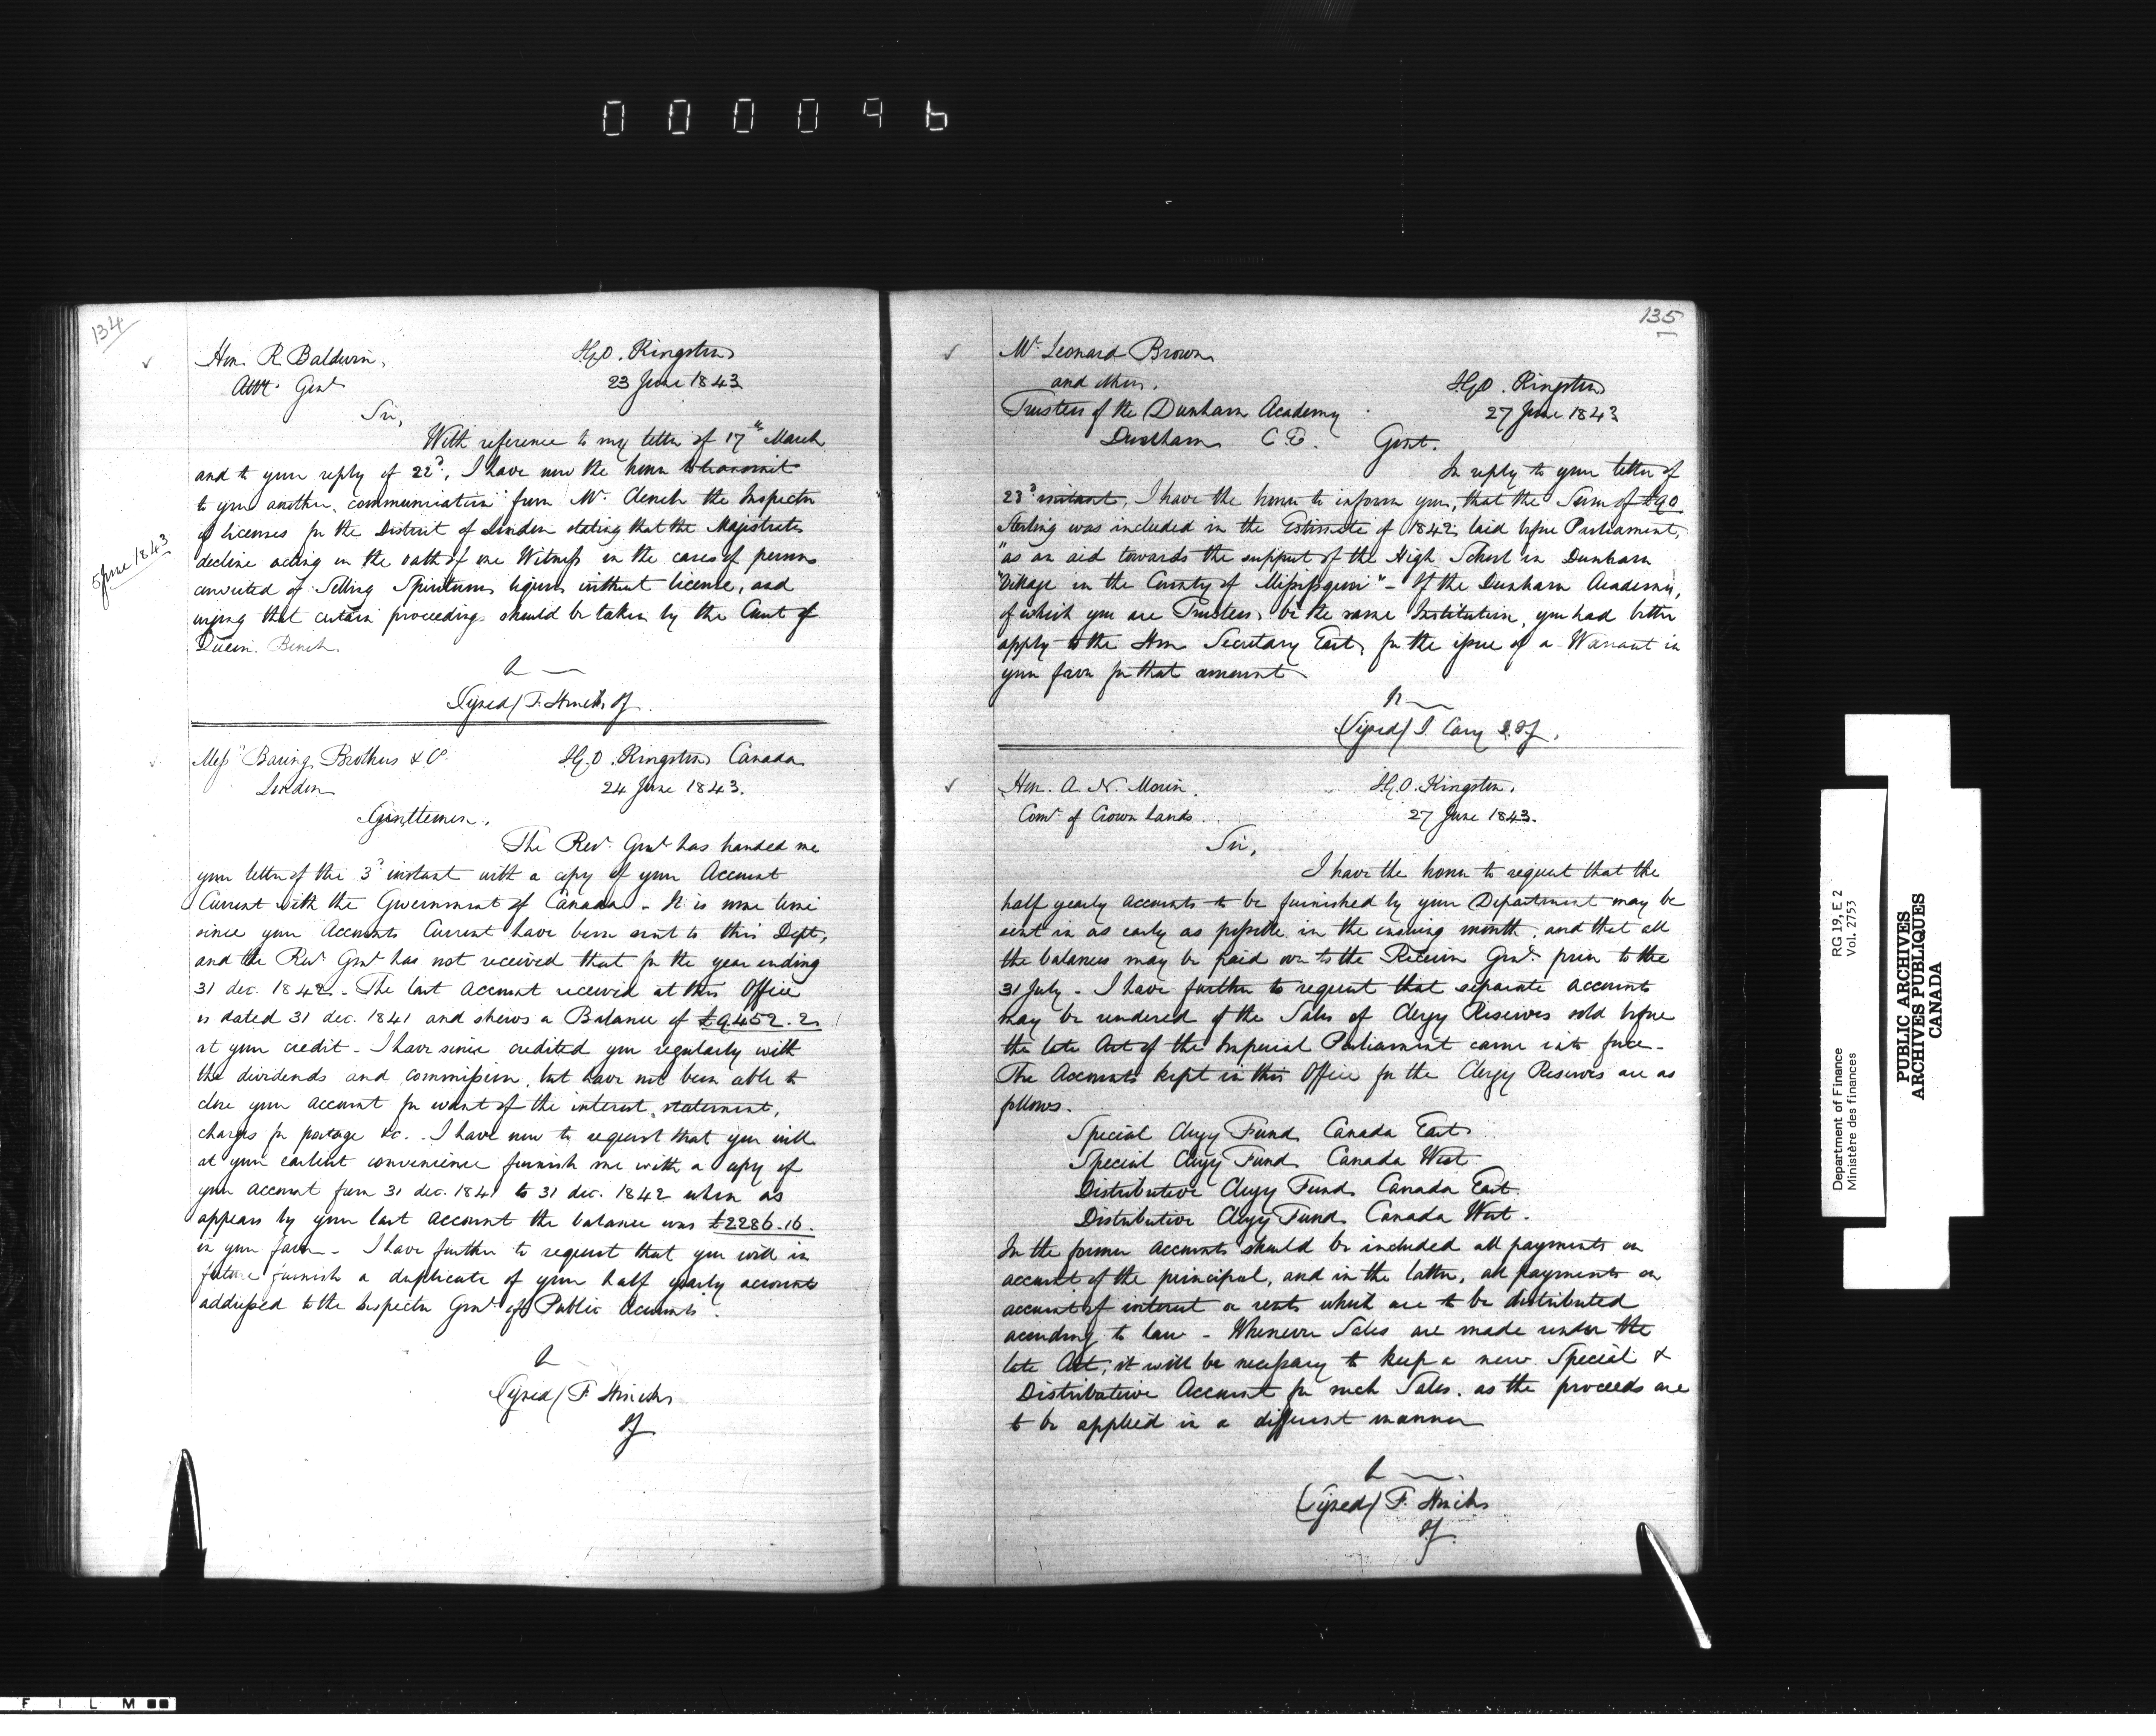 000096
134
Hon. R. Baldwin,
Att.y Gen.l
I.G.O. Kingston
23 June 1843
Sir,
With reference to my letter of 17th March
and to your reply of 22d, I have now the honor to transmit
to you another communication from Mr. Clench the Inspector
of Licenses for the District of London stating that the Majistrates
decline acting on the oath of one Witness in the cases of persons
convicted of Selling Spirituous liquors without license, and
urging that certain proceedings should be taken by the Court of
Queens Bench.
5 June 1843
(Signed) F. Hincks IG.
Messrs Baring Brothers & Co.
London
I.G.O. Kingston Canada
24 June 1843.
Gentlemen,
The Recr. Genl. has handed me
your letter of the 3d instant with a copy of your Account
Current with the Government of Canada - It is some time
since your Accounts Current have been sent to this Dept,
and the Recr Genl has not received that for the year ending
31 dec. 1842 - The last Account received at this Office
is dated 31 dec. 1841 and shews a Balance of £9452.2.
at your credit - I have since credited you regularly with
the dividends and commission, but have not been able to
close your account for want of the interest, statement,
charges for postage &c. I have now to request that you will
at your earliest convenience furnish me with a copy of
your Account from 31 dec. 1841 to 31 dec. 1842 when as
appears by your last Account the balance was £2286.16.
in your favor - I have further to request that you will in
future furnish a duplicate of your half yearly accounts
addressed to the Inspector Genl of Public Accounts.
(Signed) F. Hincks
IG
135
Mr. Leonard Brown
and others.
Trustees of the Dunham Academy
Dunham C.E.
I.G.O. Kingston
27 June 1843
Gent.
In reply to your letter of
23d instant, I have the honor to inform you, that the Sum of £90
Sterling was included in the Estimate of 1842 laid before Parliament,
"as an aid towards the support of the High School in Dunham
"Village in the County of Missisquoi" - If the Dunham Academy,
of which you are Trustees, be the same Institution, you had better
apply to the Hon. Secretary East, for the issue of a Warrant in
your favor for that amount
(Signed) J. Cary D.IG.
Hon. A. N. Morin.
Comr. of Crown Lands.
I.G.O. Kingston.
27 June 1843.
Sir,
I have the honor to request that the
half yearly accounts to be furnished by your Department may be
sent in as early as possible in the ensuing month, and that all
the balances may be paid over to the Receiver Genl. prior to the
31 July - I have further to request that separate accounts
may be rendered of the Sales of Clergy Reserves sold before
the late Act of the Imperial Parliament came into force -
The Accounts kept in this Office for the Clergy Reserves are as
follows.
Special Clergy Fund Canada East
Special Clergy Fund Canada West
Distributive Clergy Fund Canada East.
Distributive Clergy Fund Canada West.
In the former accounts should be included all payments on
account of the principal, and in the latter, all payments on
account of interest or rents which are to be distributed
according to law - Whenever Sales are made under the
late Act, it will be necessary to keep a new Special &
Distributive Account for such Sales. as the proceeds are
to be applied in a different manner
(Signed) F. Hincks
IG
Department of Finance
Ministère des finances
RG 19, E 2
Vol. 2753
PUBLIC ARCHIVES
ARCHIVES PUBLIQUES
CANADA
FILM